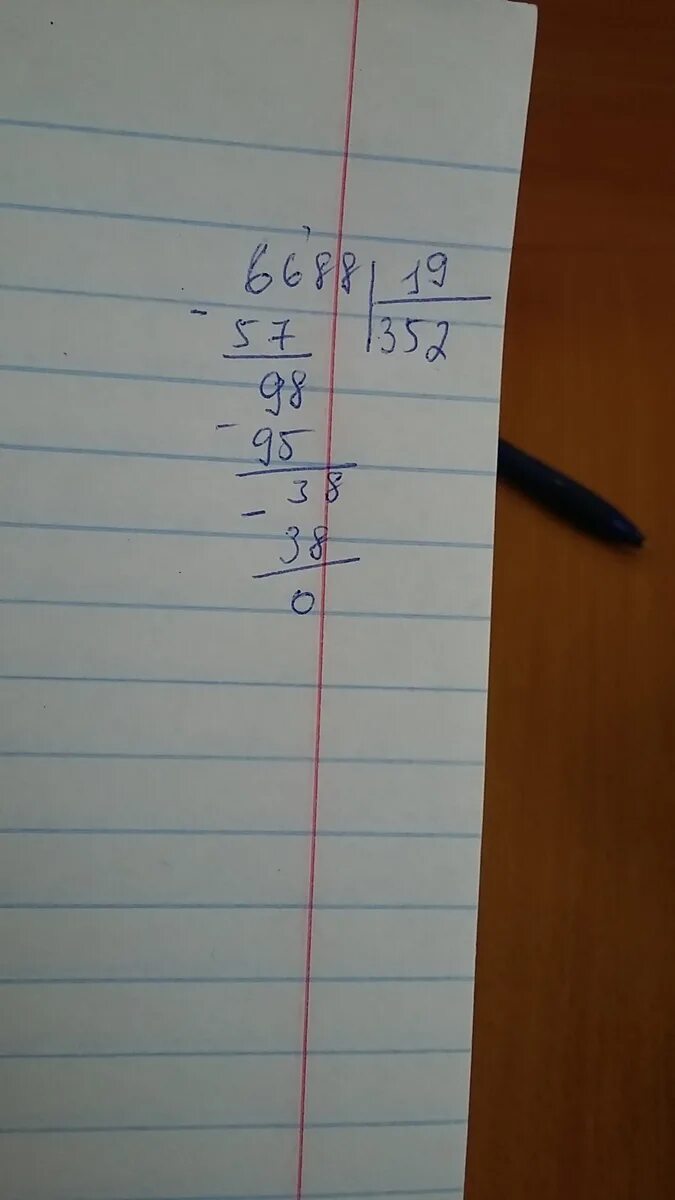 6688 19
- 57 352
98
- 95
38
- 38
0